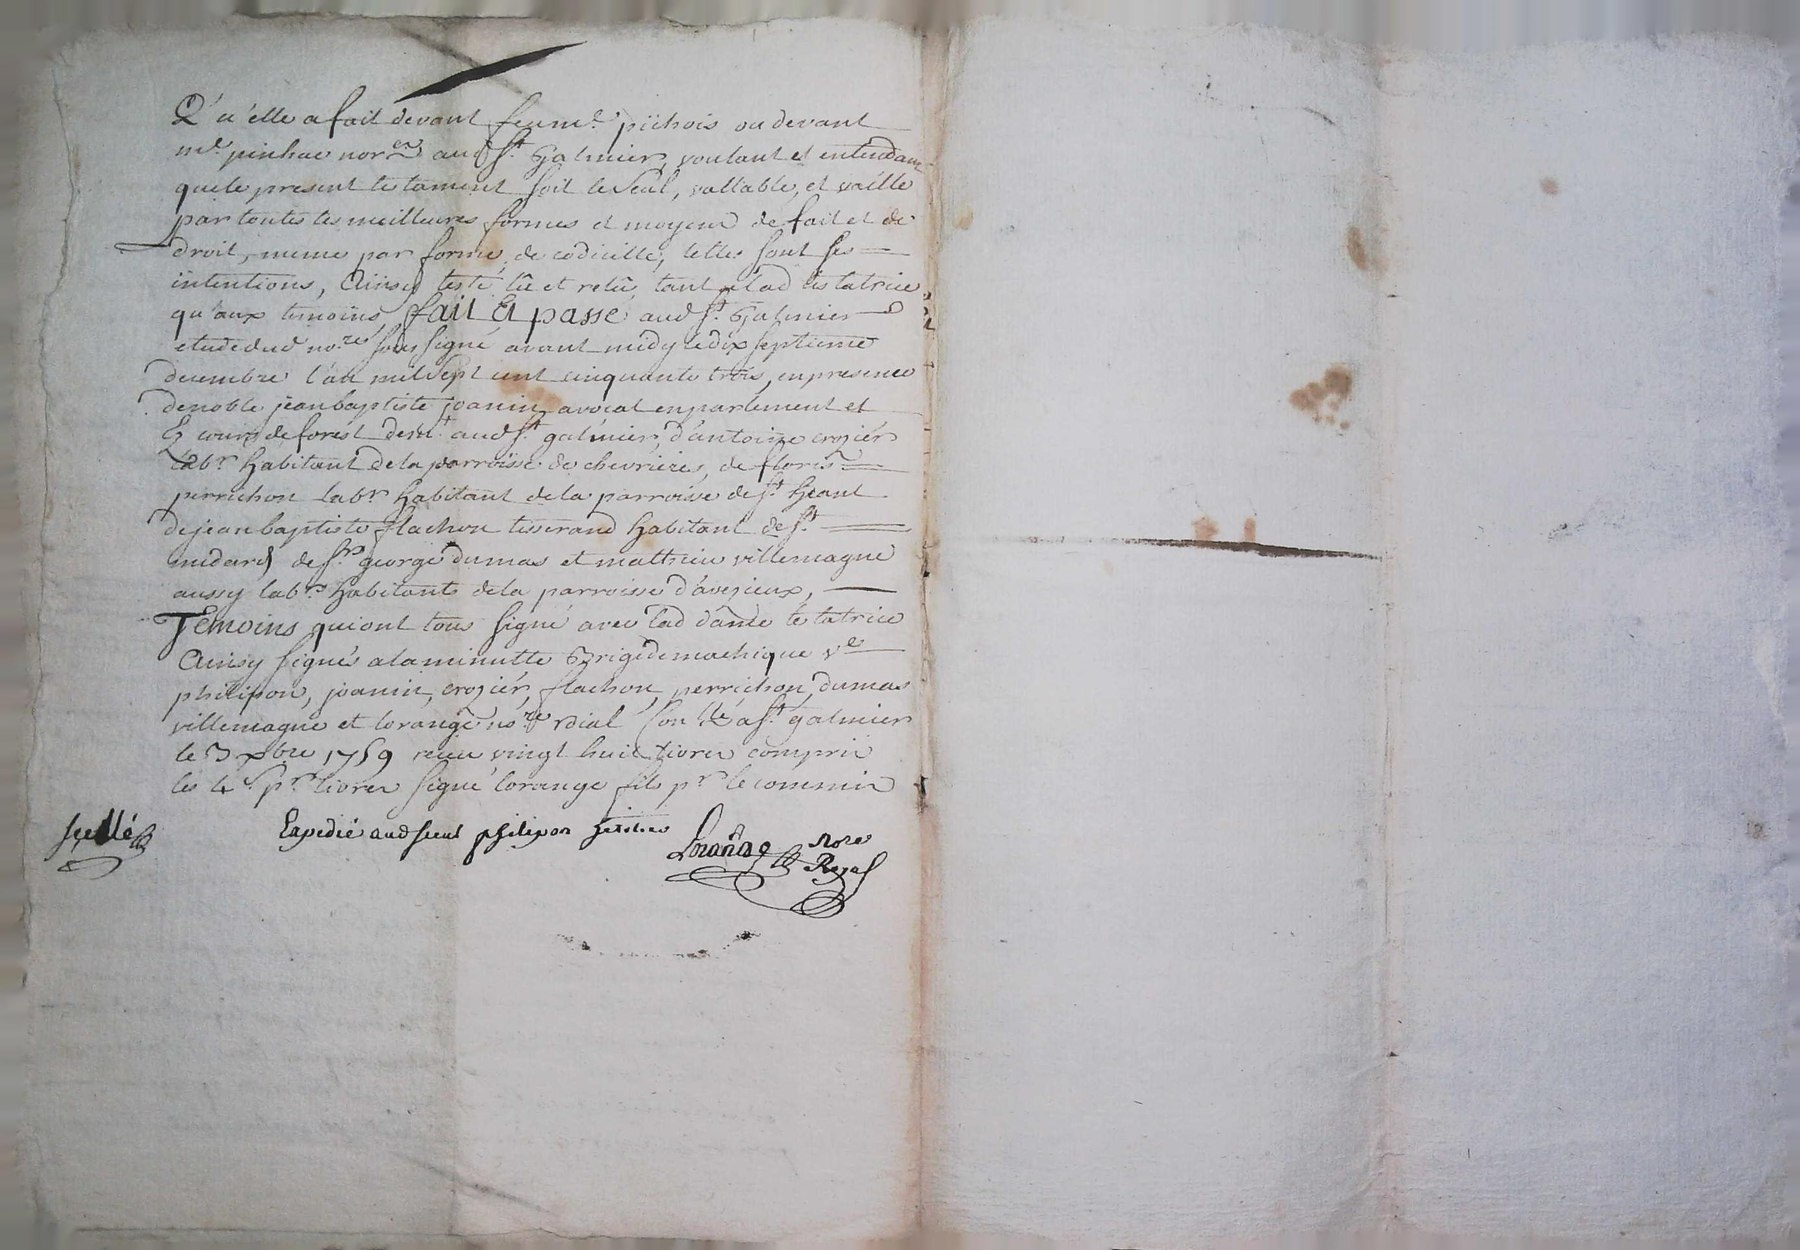 Qu'elle a fait devant feu me. pichois ou devant
me. pinhac norer. aud st. Galmier, voulant et entendant
que le present testament soit le seul, vallable, et vaille
par toutes les meilleures formes et moyens de fait et de
droit, meme par forme de codicille, telles sont ses
intentions, Ainsy testé lû et relû, tant a lad testatrice
qu'aux temoins, fait Et passé aud st. Galmier
etude dud nore. sous signé avant midy le dix septieme
decembre l'an mil sept cent cinquante trois, en presence
de noble jean baptiste joanin, avocat en parlement et
Ez cours de forest demt. aud st. galmier, d'antoine crozier
labr. habitant de la parroisse de chevrieres, de floris
perrichon labr. habitant de la parroisse de st. heant
de jean baptiste flachon tisserand habitant de st.
medard de srs. george dumas et mathieu villemagne
aussy labrs. habitants de la parroisse d'aveizieux,
Temoins qui ont tous signé avec lad dame testatrice
Ainsy signés a la minutte Brigide machique ve
philipon, joanin, crozier, flachon, perrichon, dumas
villemagne et lorange nore roial Con lé a st. galmier
le 3 xbre 1759 reçu vingt huit livres compris
les 4 s pr. livres signé lorange fils pr. le commis
scellé Expedié aud sieur philipon heritier
Lorange Nore
Royal